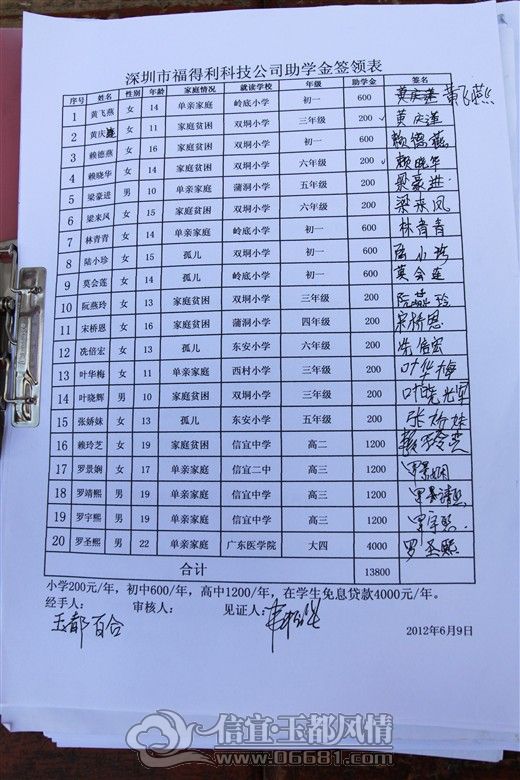 深圳市福得利科技公司助学金签领表
序号 姓名 性别 年龄 家庭情况 就读学校 年级 助学金 签名
1 黄飞燕 女 14 单亲家庭 岭底小学 初一 600 黄飞燕
2 黄庆 女 11 家庭贫困 双垌小学 三年级 200 黄庆莲
3 赖德燕 女 16 家庭贫困 双垌小学 初一 600 赖德燕
4 赖晓华 女 14 家庭贫困 双垌小学 六年级 200 赖晓华
5 梁豪进 男 10 单亲家庭 蒲洞小学 五年级 200 梁豪进
6 梁来风 女 15 家庭贫困 双垌小学 六年级 200 梁来凤
7 林青青 女 14 单亲家庭 岭底小学 初一 600 林青青
8 陆小珍 女 15 孤儿 双垌小学 初一 600 小珍
9 莫会莲 女 14 孤儿 岭底小学 初一 600 莫会莲
10 阮燕玲 女 13 家庭贫困 双垌小学 三年级 200 阮燕玲
11 宋桥恩 女 16 家庭贫困 蒲洞小学 四年级 200 宋桥恩
12 冼倍宏 女 13 孤儿 东安小学 六年级 200 冼倍宏
13 叶华梅 女 11 单亲家庭 西村小学 三年级 200 叶华梅
14 叶晓辉 男 10 家庭贫困 双垌小学 三年级 200 叶晓辉
15 张娇妹 女 13 孤儿 东安小学 五年级 200 张娇妹
16 赖玲芝 女 19 家庭贫困 信宜中学 高二 1200 赖玲芝
17 罗景娴 女 17 单亲家庭 信宜二中 高三 1200 罗景娴
18 罗靖熙 男 19 单亲家庭 信宜中学 高三 1200
19 罗宇熙 男 19 单亲家庭 信宜中学 高三 1200 罗宇熙
20 罗圣熙 男 22 单亲家庭 广东医学院 大四 4000 罗圣熙
合计 13800
小学200元/年，初中600/年，高中1200/年，在学生免息贷款4000元/年。
经手人： 审核人： 见证人：
玉都百合
2012年6月9日
信宜·玉都风情
www.06681.com